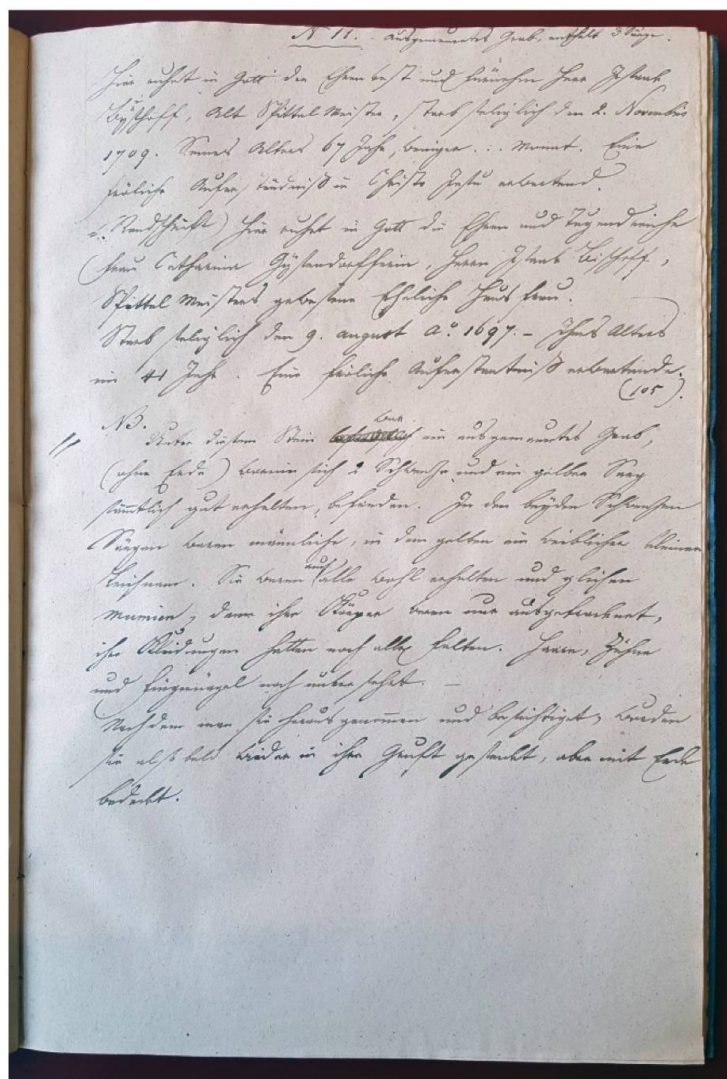 N° 11. - Ausgemauertes Grab, enthält 3 Särge.
Hier ruhet in Gott der Ehrenvest und Fürnehm Herr Isaak
Byschoff, Alt Spittel Meister, starb seliglich den 2. Novembris
1709. Seines Alters 67 Jahr, weniger .:. Monat. Eine
fröliche Auferständniß in Christo Jesu erwartend.
(Randschrift) Hier ruhet in Gott die Ehren und Tugendreiche
Frau Catharina Gysendörfferin, Herrn Isaak Bischoff,
Spittel Meisters gewesene Eheliche Hausfrau.
Starb seliglich den 9. august A° 1697. - Ihres Alters
im 41 Jahr. Eine fröliche Auferstentniß erwartende.
(105).
NB.
Unter diesem Stein war ein ausgemauertes Grab,
(ohne Erde) worin sich 2 Schwarze und ein gelber Sarg
sämtlich gut erhalten, befanden. In den beyden Schwarzen
Särgen waren männliche, in dem gelben ein weiblicher kleiner
Leichnam. Sie waren auch alle wohl erhalten und glichen
Mumien, dann ihre Körper waren nur ausgetrocknet,
ihre Kleidungen hatten noch alle Falten. Haare, Zähne
und Fingernägel noch unversehrt. -
Nachdem man sie herausgenommen und besichtiget, wurden
sie alsobald wieder in ihre Gruft gesenkt, aber mit Erde
bedeckt.